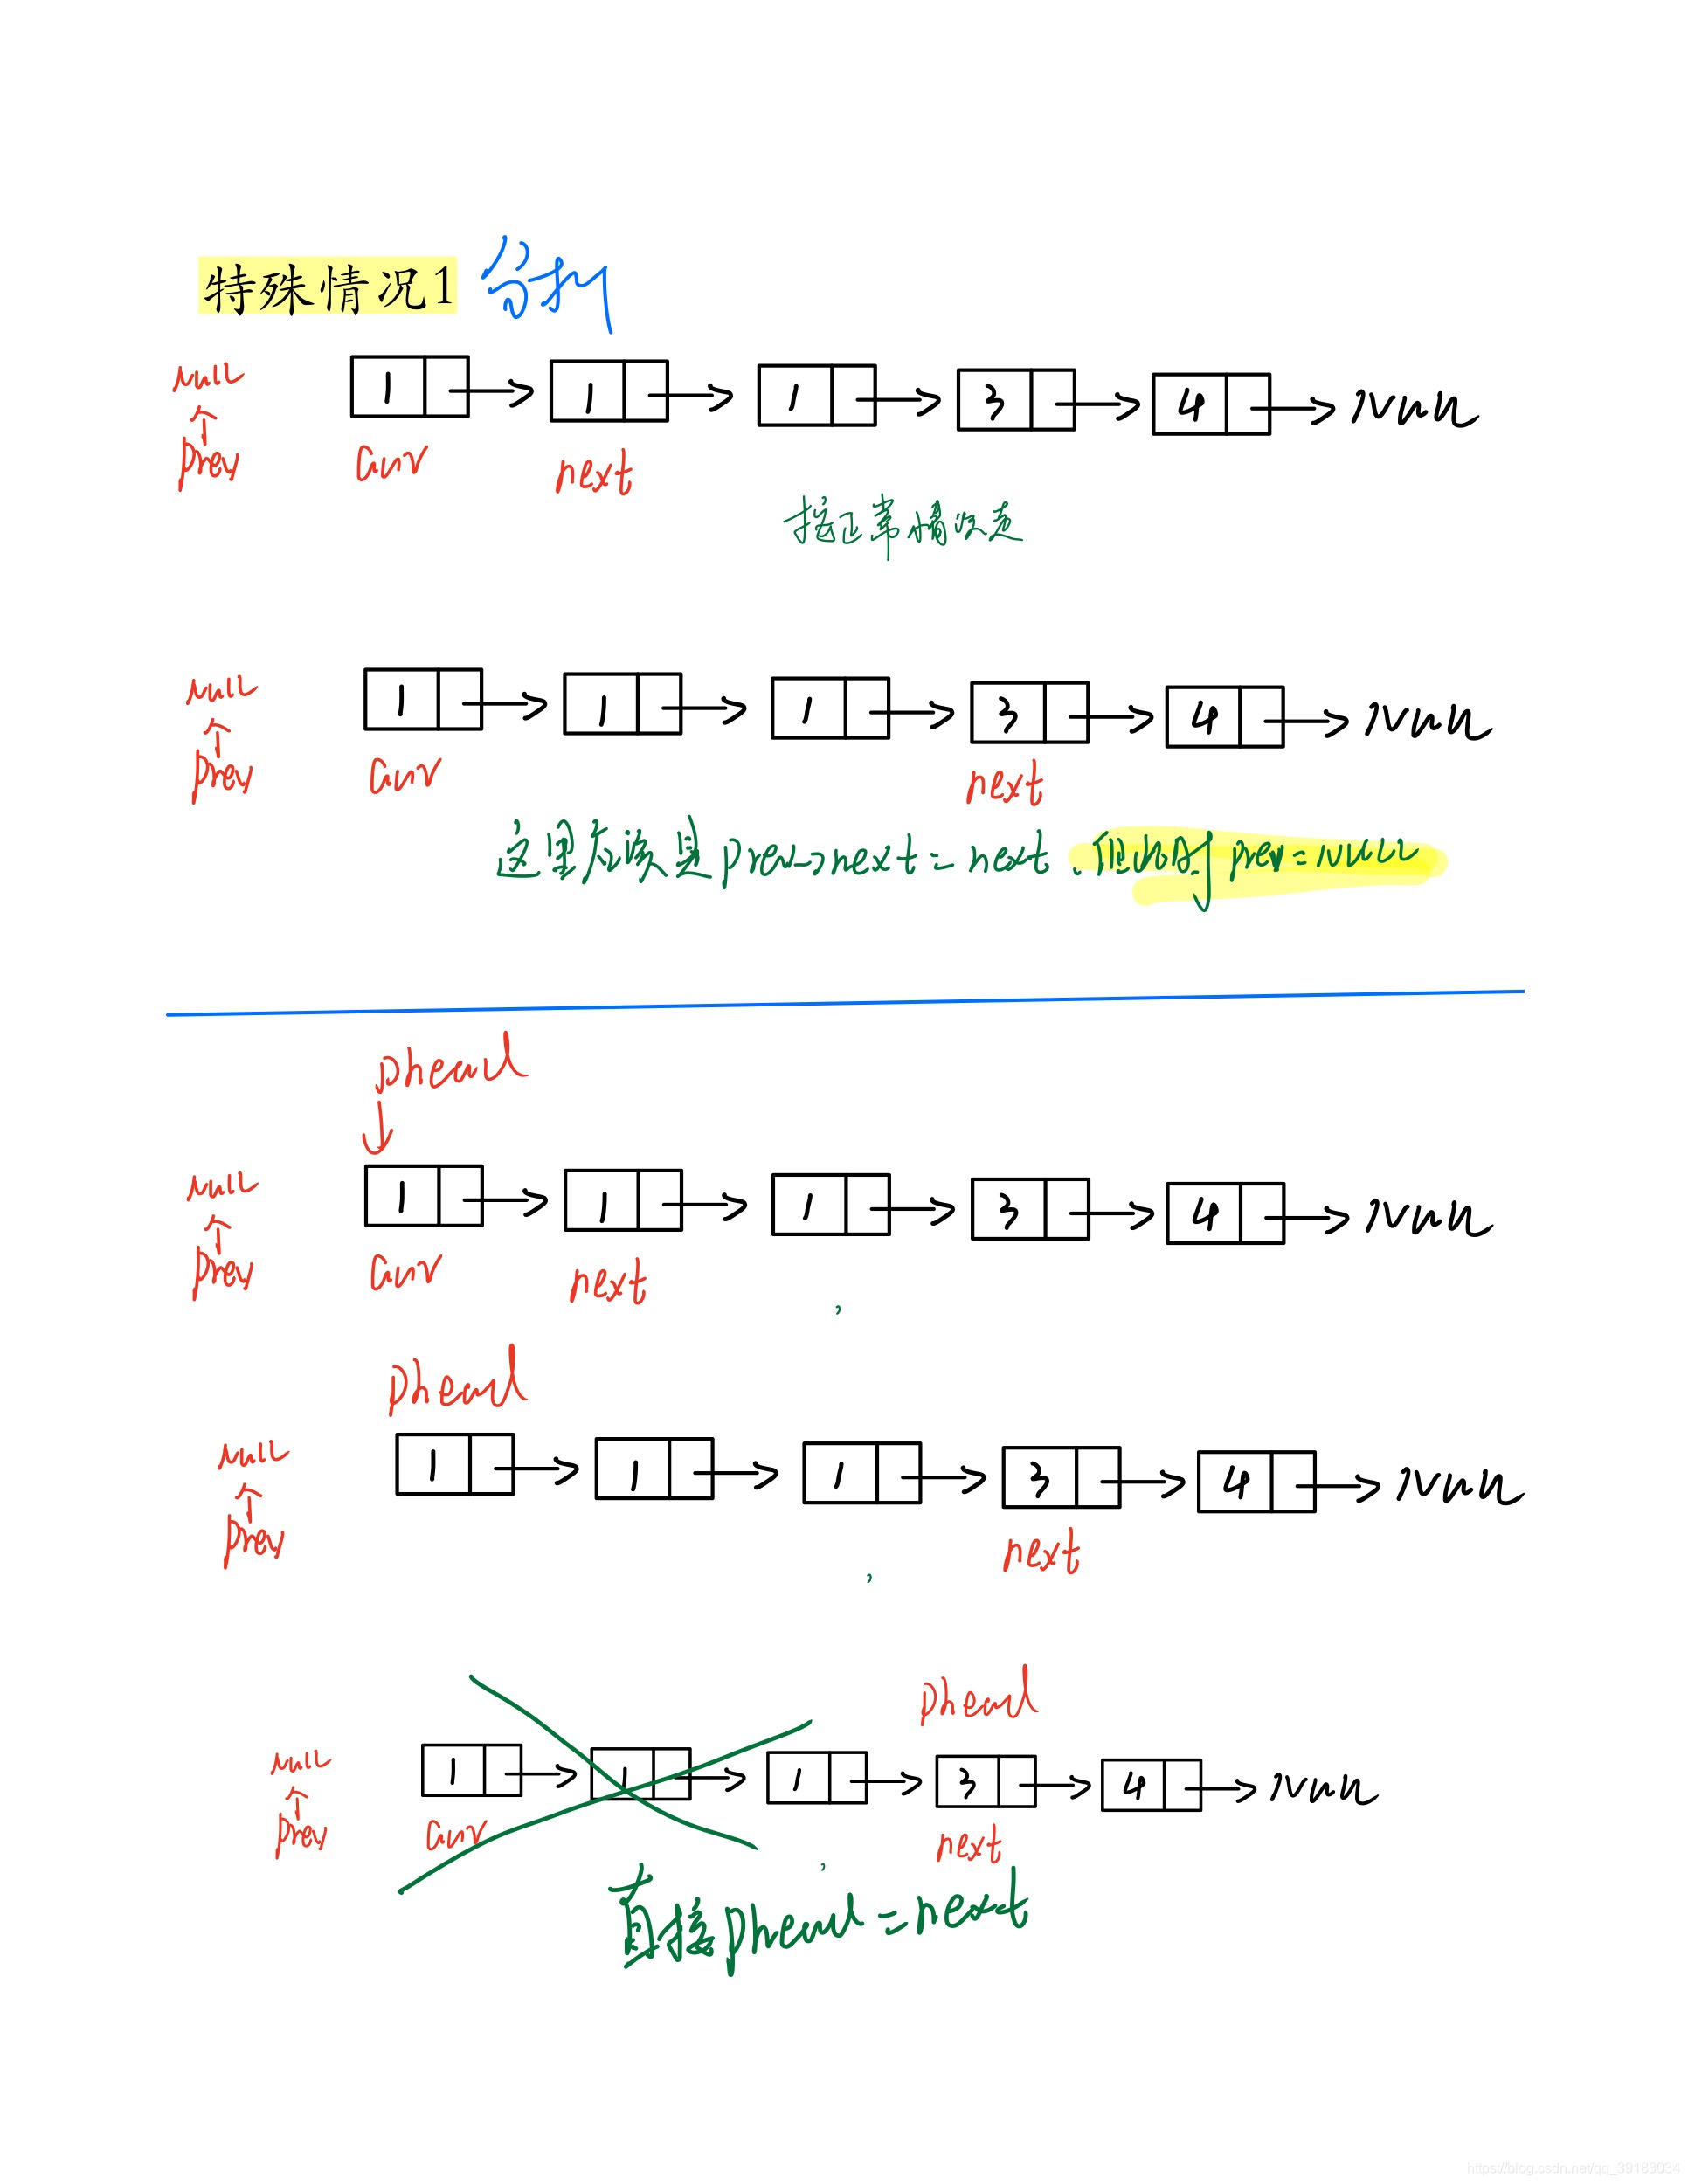 特殊情况1 分析
null 1 1 1 3 4 NULL
prev cur next
按正常情况走
null 1 1 1 3 4 NULL
prev cur next
这里应该是prev->next=next.但此时prev=NULL
phead
null 1 1 1 3 4 NULL
prev cur next
,
phead
null 1 1 1 3 4 NULL
prev next
,
phead
null 1 1 1 3 4 NULL
prev cur next
,
直接phead=next
https://blog.csdn.net/qq_39183034